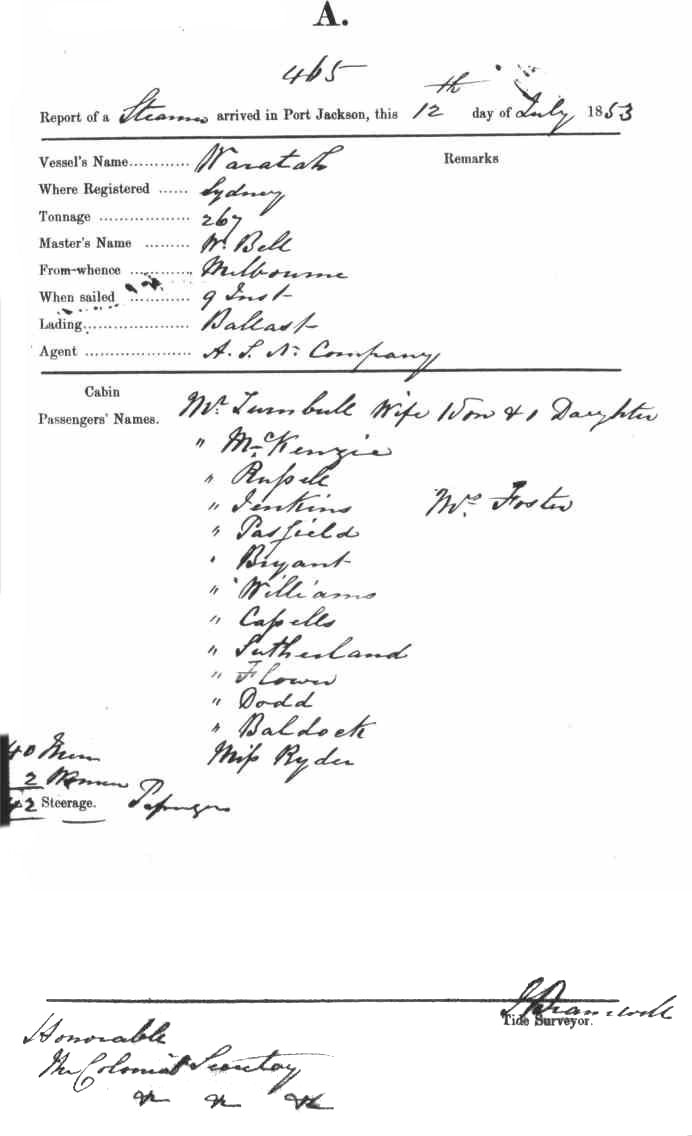 A.
465
Report of a Steamer arrived in Port Jackson, this 12th day of July 1853
Vessel's Name............ Waratah Remarks
Where Registered ...... Sydney
Tonnage .................. 267
Master's Name ......... W. Bell
From-whence ............ Melbourne
When sailed ............ 9 Inst
Lading..................... Ballast
Agent ..................... A. S. N. Company
Cabin
Passengers' Names. Mr. Turnbull Wife 1 Son & 1 Daughter
" McKenzie
" Russell
" Jenkins Mrs Foster
" Pasfield
" Bryant
" Williams
" Capells
" Sutherland
" Flower
" Dodd
" Baldock
40 Men Miss Ryder
2 Women
42 Steerage. Passengers
Tide Surveyor.
Honorable
The Colonial Secretary